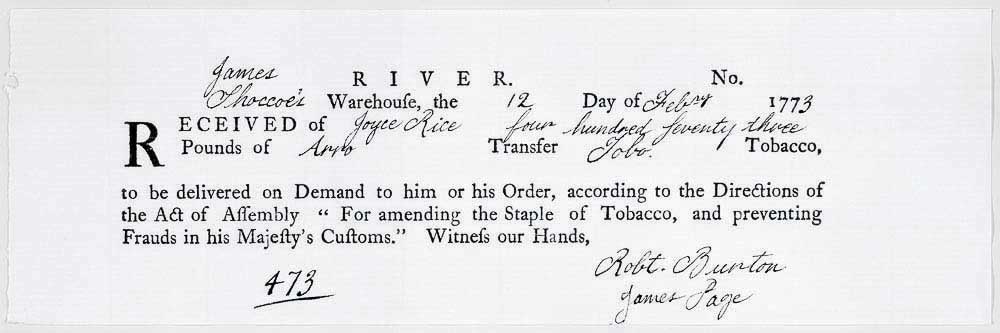 James RIVER. No.
Shoccoe's Warehouſe, the 12 Day of Febry 1773
RECEIVED of Joyce Rice four hundred ſeventy three
Pounds of Arro Transfer Tobo. Tobacco,
to be delivered on Demand to him or his Order, according to the Directions of
the Act of Aſſembly “ For amending the Staple of Tobacco, and preventing
Frauds in his Majeſty's Cuſtoms.” Witneſs our Hands,
Robt. Burton
473
James Page